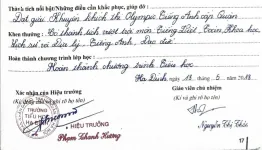 Thành tích nổi bật/Những điều cần khắc phục, giúp đỡ:
Đạt giải Khuyến khích thi Olympic Tiếng Anh cấp Quận
Khen thưởng: Có thành tích vượt trội môn Tiếng Việt, Toán, Khoa học
Lịch sử và Địa lý, Tiếng Anh, Đạo đức
Hoàn thành chương trình lớp học:
Hoàn thành chương trình Tiểu học
Hà Đình, ngày 18 tháng 5 năm 2018
Xác nhận của Hiệu trưởng
(Ký, đóng dấu và ghi rõ họ tên)
Giáo viên chủ nhiệm
(Ký và ghi rõ họ tên)
TRƯỜNG
TIỂU HỌC
HIỆU TRƯỞNG
Phạm Khánh Hương
Nguyễn Thị Thúy
17